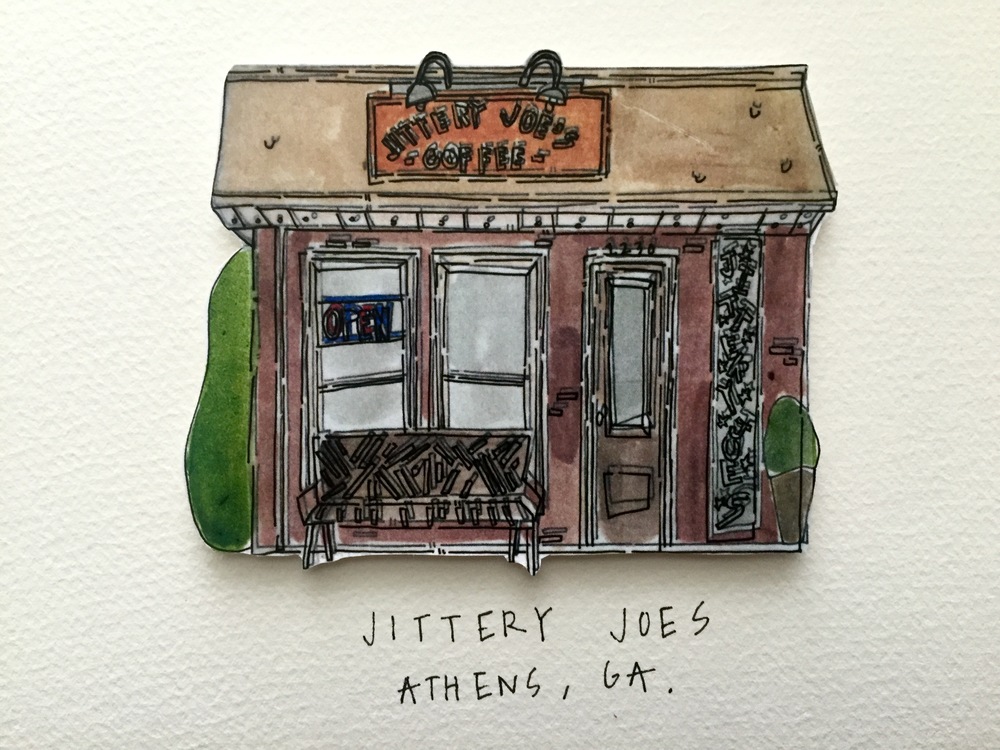 JITTERY JOE'S
-COFFEE-
OPEN
JITTERY JOES
ATHENS, GA.